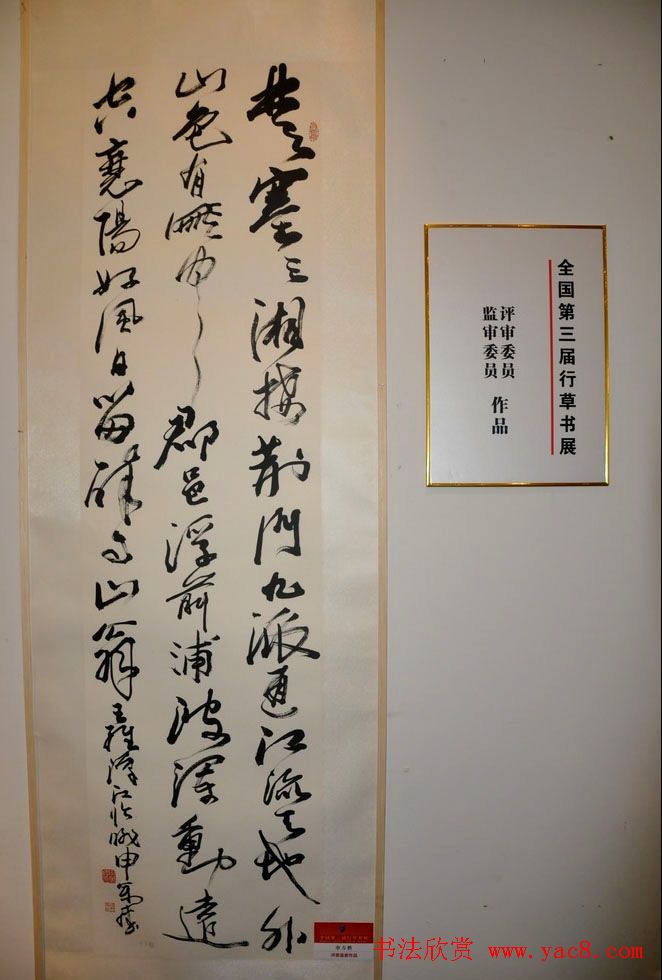 楚塞三湘接荆門九派通江流天地外
山色有無中郡邑浮前浦波瀾動遠
空襄陽好風日留醉与山翁 王維漢江临眺 申萬勝
全国第三届行草书展
评审委员
监审委员
作品
申万胜
书法欣赏 www.yac8.com